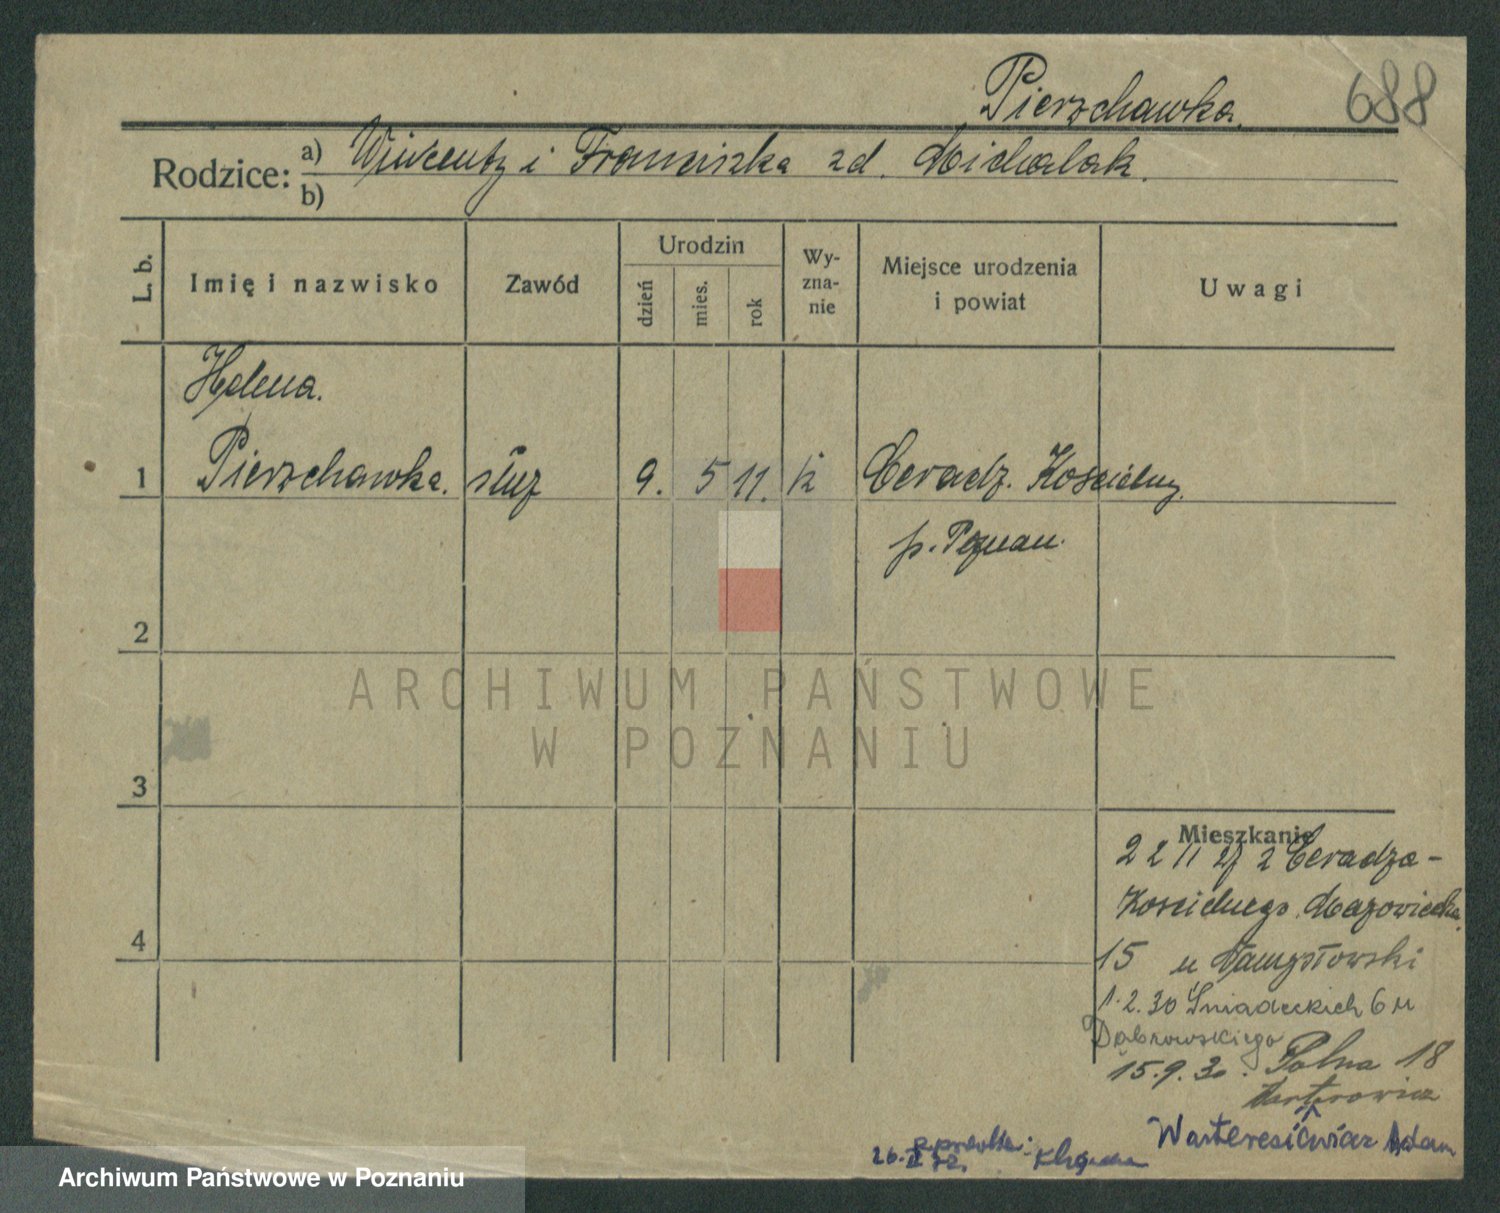 Pierzchawka. 688
Rodzice: a) Wincenty i Franciszka zd. Michalak.
b)
L. b. Imię i nazwisko Zawód Urodzin dzień mies. rok Wy-zna-nie Miejsce urodzenia i powiat Uwagi
Helena.
1 Pierzchawka. służ 9. 5 11. k Ceradz. Kościelny.
p. Poznań.
2
ARCHIWUM PAŃSTWOWE
W POZNANIU
3
Mieszkanie
22 11 27 z Ceradza-
Kościelnego Mazowiecka
15 u Namysłowski
1.2.30 Śniadeckich 6 u
Dąbrowskiego
15.9.30. Polna 18
Adam
26.
4
Archiwum Państwowe w Poznaniu